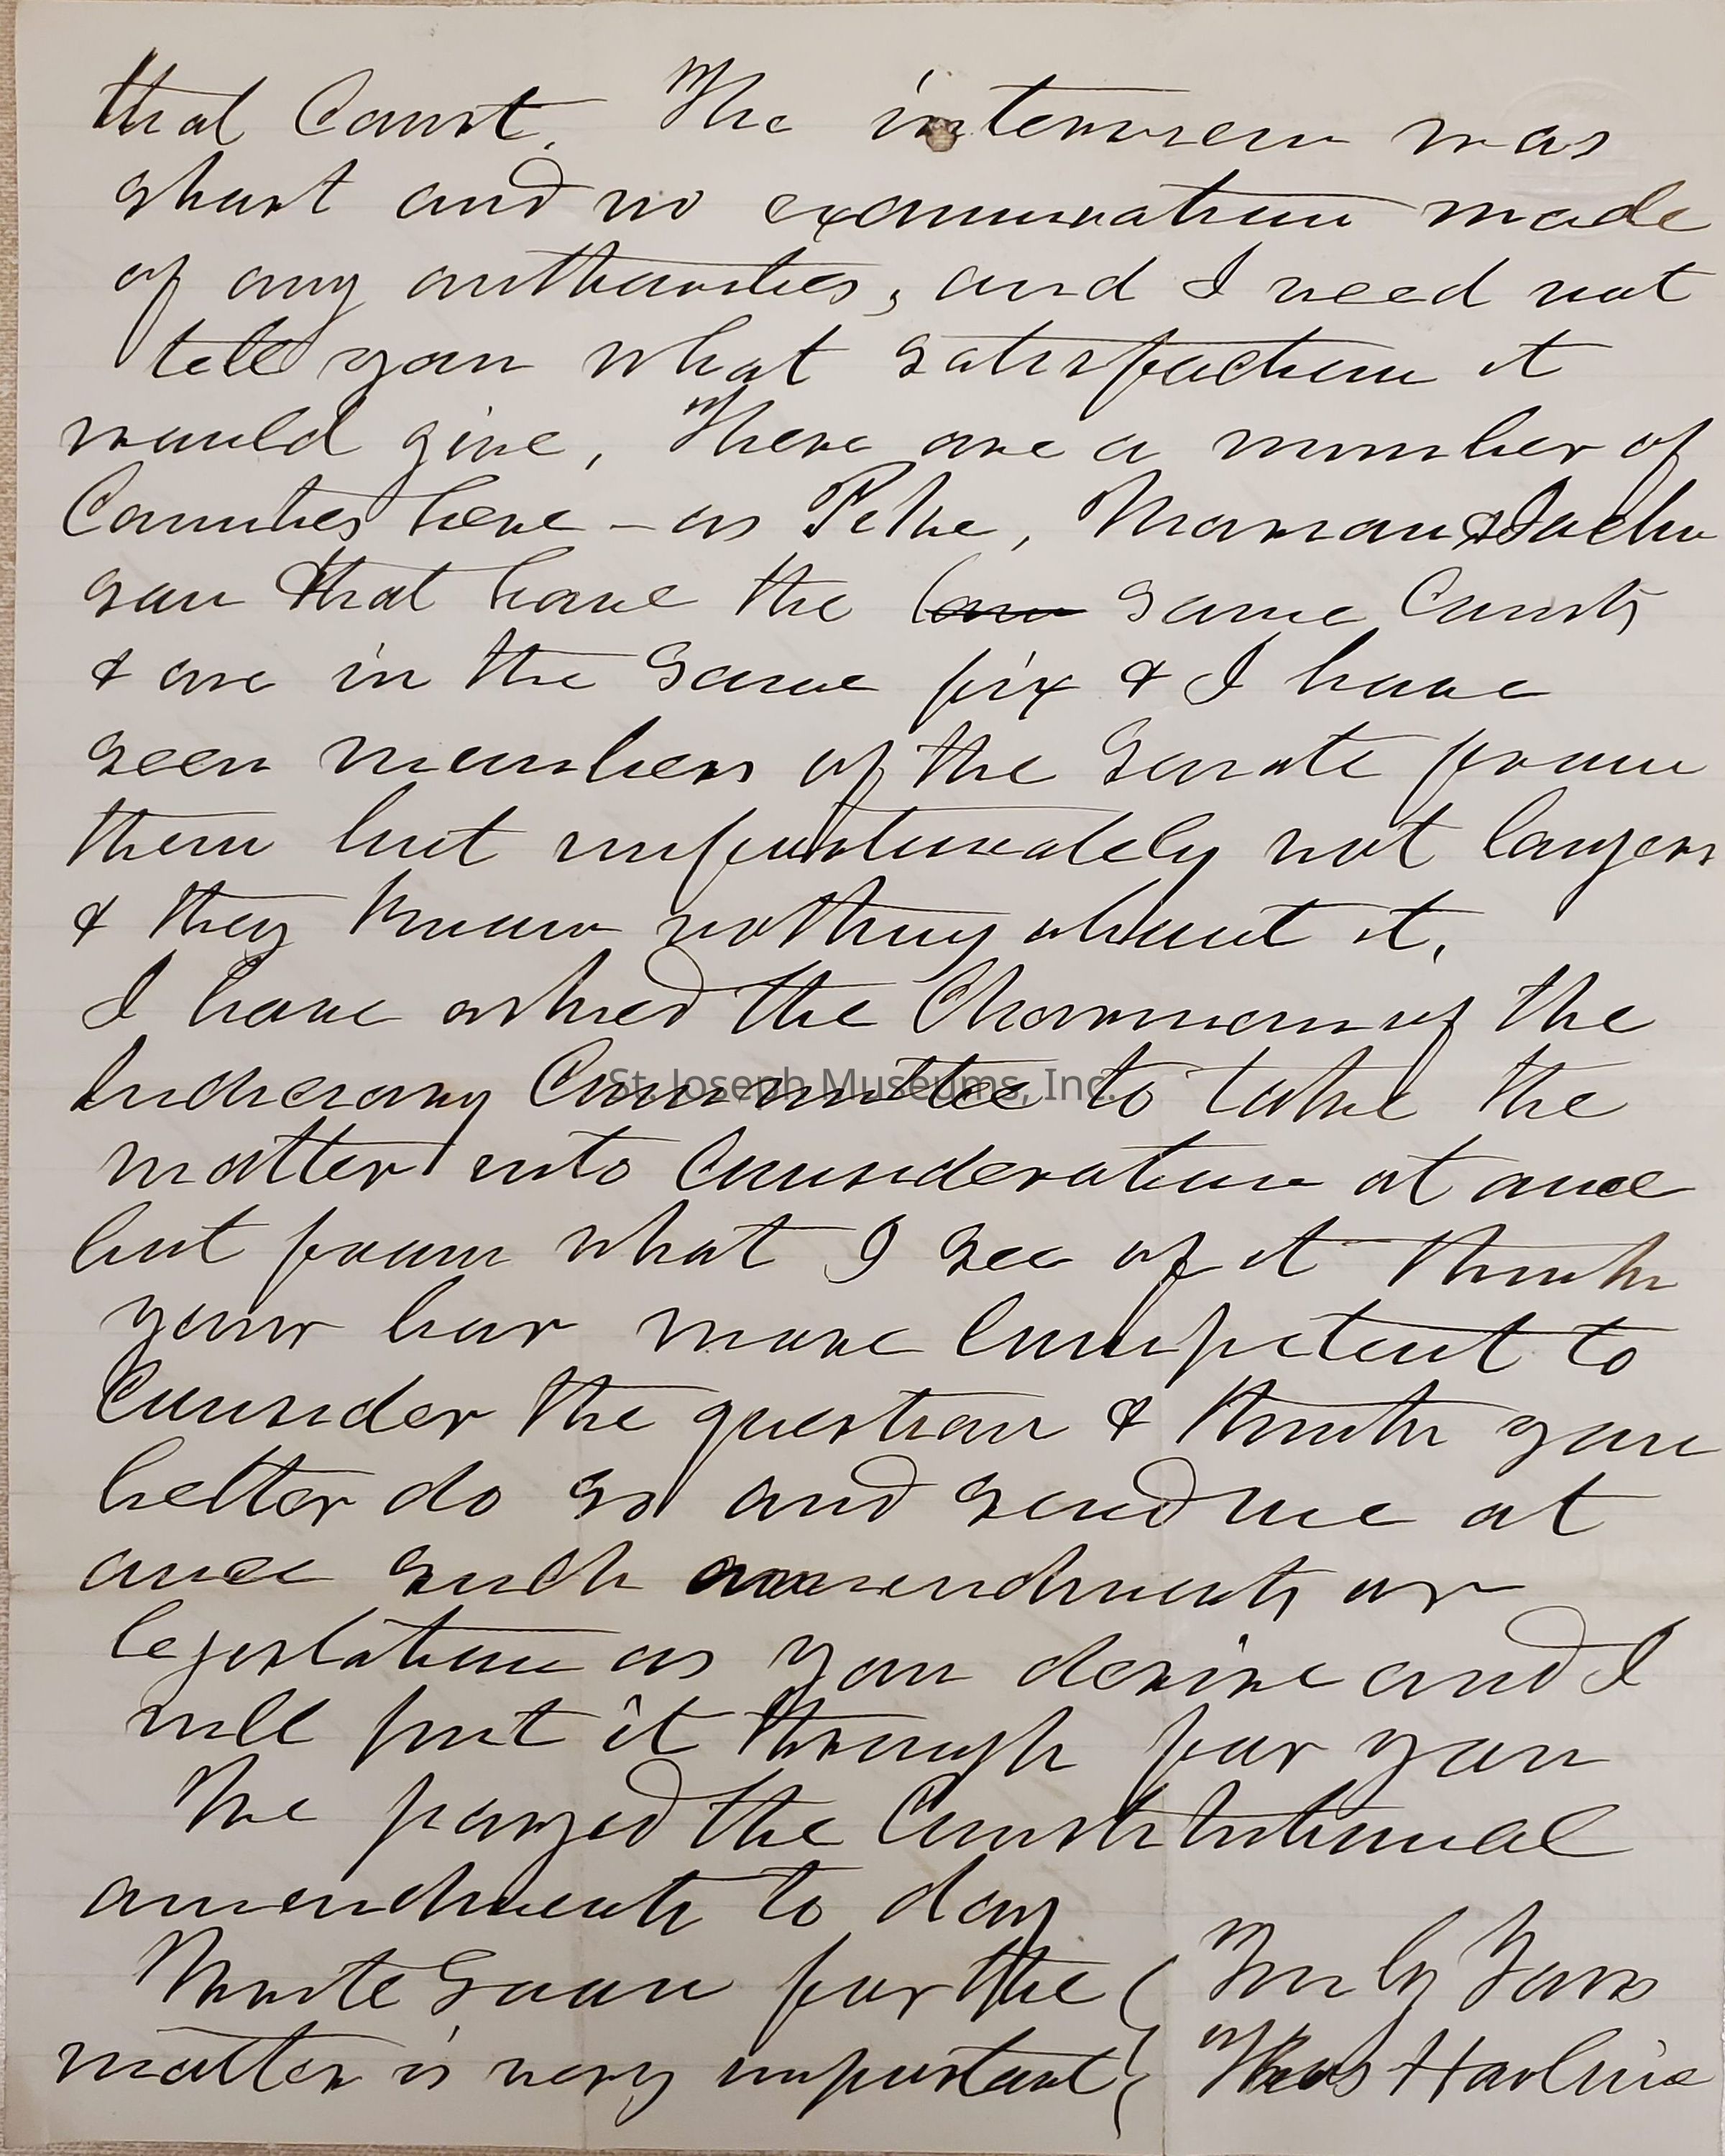 that Court. The interview was
short and no examination made
of any authorities, and I need not
tell you what satisfaction it
would give, There are a number of
Counties here - as Pike, Marion & Jack
son that have the same Courts
& are in the same fix & I have
seen members of the Senate from
them but unfortunately not lawyers
& they know nothing about it.
I have asked the Chairman of the
Judiciary Committee to take the
matter into consideration at once
but from what I see of it think
your bar more competent to
consider the question & think you
better do so and send me at
once such amendments or
legislation as you desire and I
will put it through for you
We passed the Constitutional
amendments to day
Write soon for the
matter is very important
Truly Yours
Thos Harbine
St. Joseph Museums, Inc.